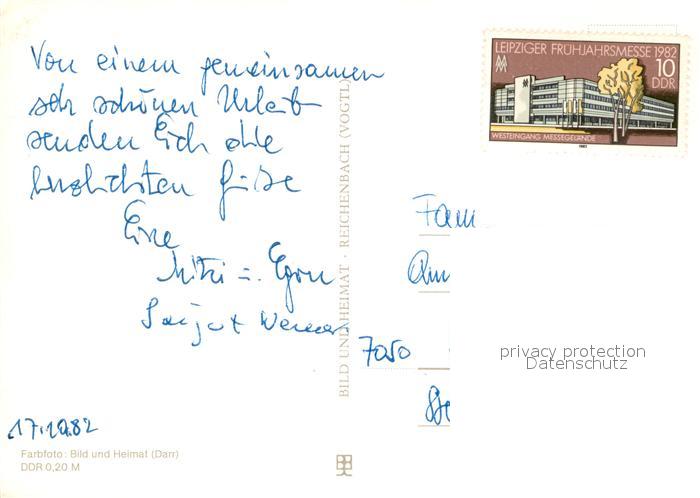 Von einem gemeinsamen
sehr schönen Urlaub
senden Euch die
herzlichsten Grüße
Eure
Mitzi u. Egon
Werner
17.10.82
Farbfoto: Bild und Heimat (Darr)
DDR 0,20 M
BILD UND HEIMAT · REICHENBACH (VOGTL)
LEIPZIGER FRÜHJAHRSMESSE 1982
10
DDR
WESTEINGANG MESSEGELÄNDE
1982
Fam
Am
7050
privacy protection
Datenschutz